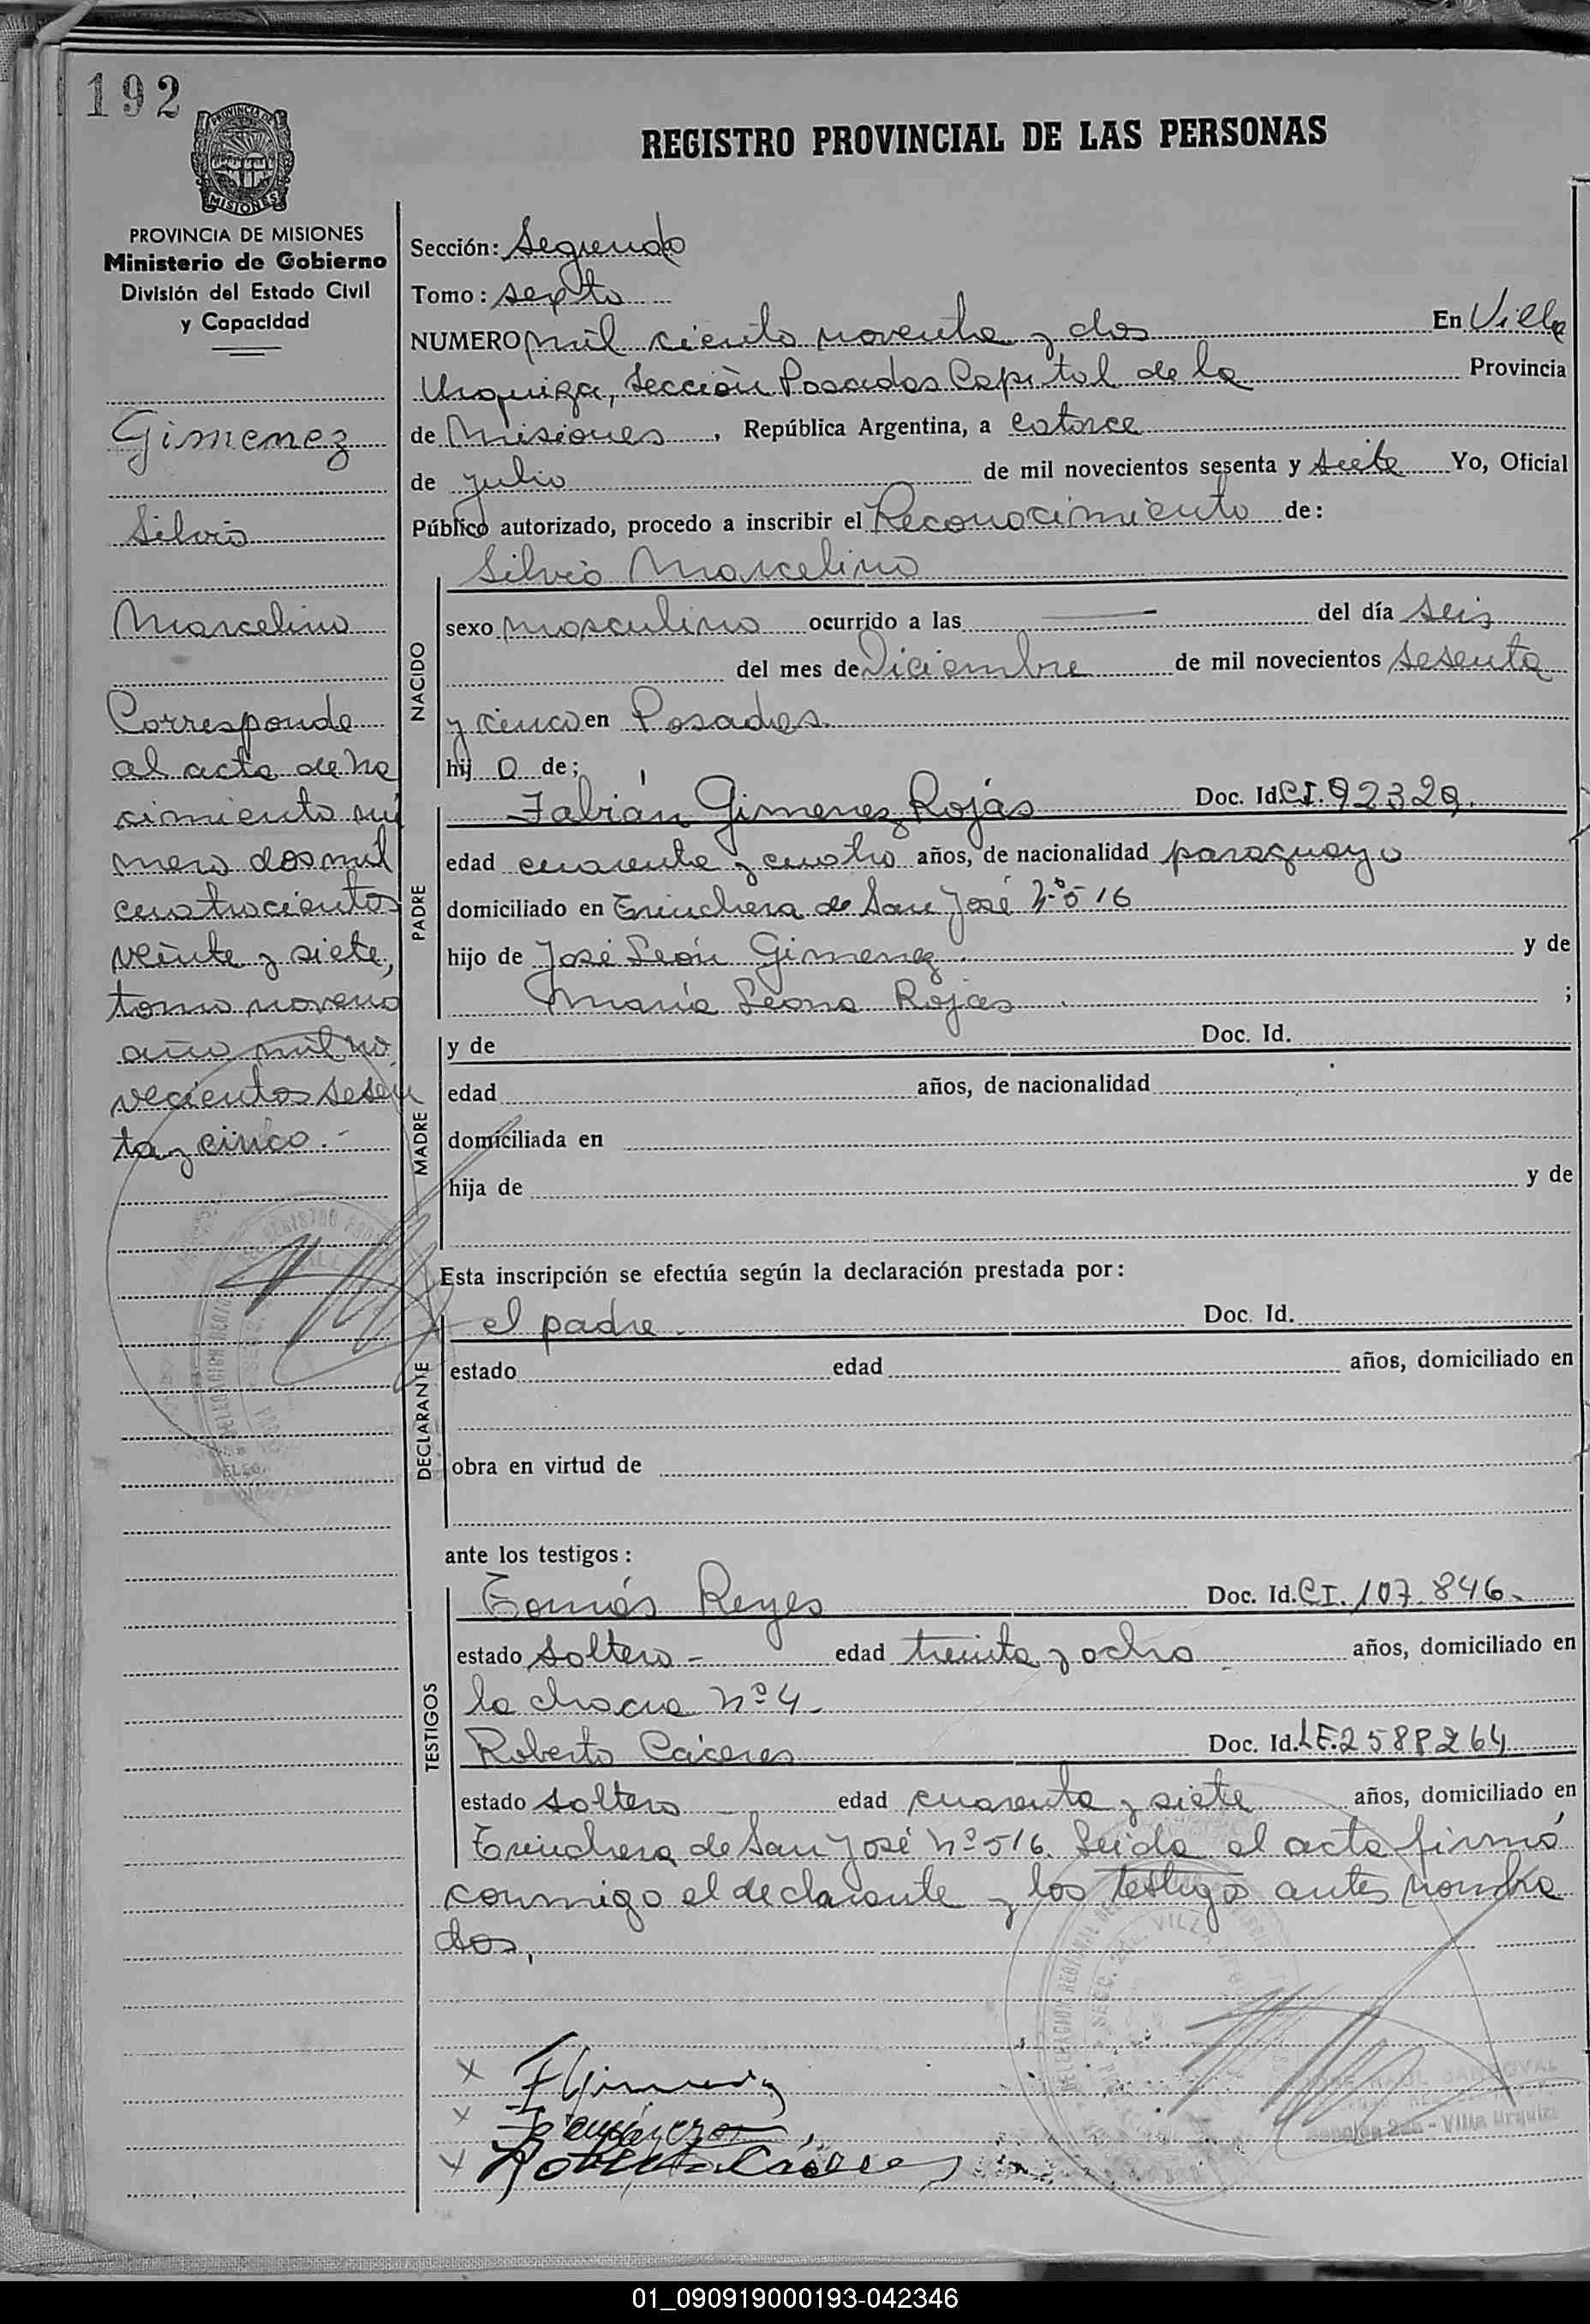 192
PROVINCIA DE
MISIONES
PROVINCIA DE MISIONES
Ministerio de Gobierno
División del Estado Civil
y Capacidad
Gimenez
Silvio
Marcelino
Corresponde
al acta de na
cimiento nú
mero dos mil
cuatrocientos
veinte y siete,
tomo noveno
año mil no
vecientos sesen
ta y cinco.-
REGISTRO PROVINCIAL DE LAS PERSONAS
Sección: Segundo
Tomo: sexto
NUMERO mil ciento noventa y dos En Villa
Urquiza, Sección Posadas Capital de la Provincia
de Misiones, República Argentina, a catorce
de julio de mil novecientos sesenta y siete Yo, Oficial
Público autorizado, procedo a inscribir el Reconocimiento de:
Silvio Marcelino
NACIDO
sexo masculino ocurrido a las — del día seis
del mes de Diciembre de mil novecientos sesenta
y cinco en Posadas.
hij o de;
PADRE
Fabián Gimenez Rojas Doc. Id. CI. 92329.
edad cuarenta y cuatro años, de nacionalidad paraguayo
domiciliado en Trinchera de San José Nº 516
hijo de José León Gimenez y de
María Leona Rojas ;
MADRE
y de Doc. Id.
edad años, de nacionalidad
domiciliada en
hija de y de
Esta inscripción se efectúa según la declaración prestada por:
DECLARANTE
el padre. Doc. Id.
estado edad años, domiciliado en
obra en virtud de
ante los testigos:
TESTIGOS
Tomás Reyes Doc. Id. CI. 107.846.
estado soltero - edad treinta y ocho años, domiciliado en
la chacra Nº 4.
Roberto Cáceres Doc. Id. LE. 2588264
estado soltero edad cuarenta y siete años, domiciliado en
Trinchera de San José Nº 516. Leida el acta firmó
conmigo el declarante y los testigo antes nombra
dos,
F Gimenez
Roberto Cáceres
SANDOVAL
Sección 2da - Villa Urquiza
01_090919000193-042346